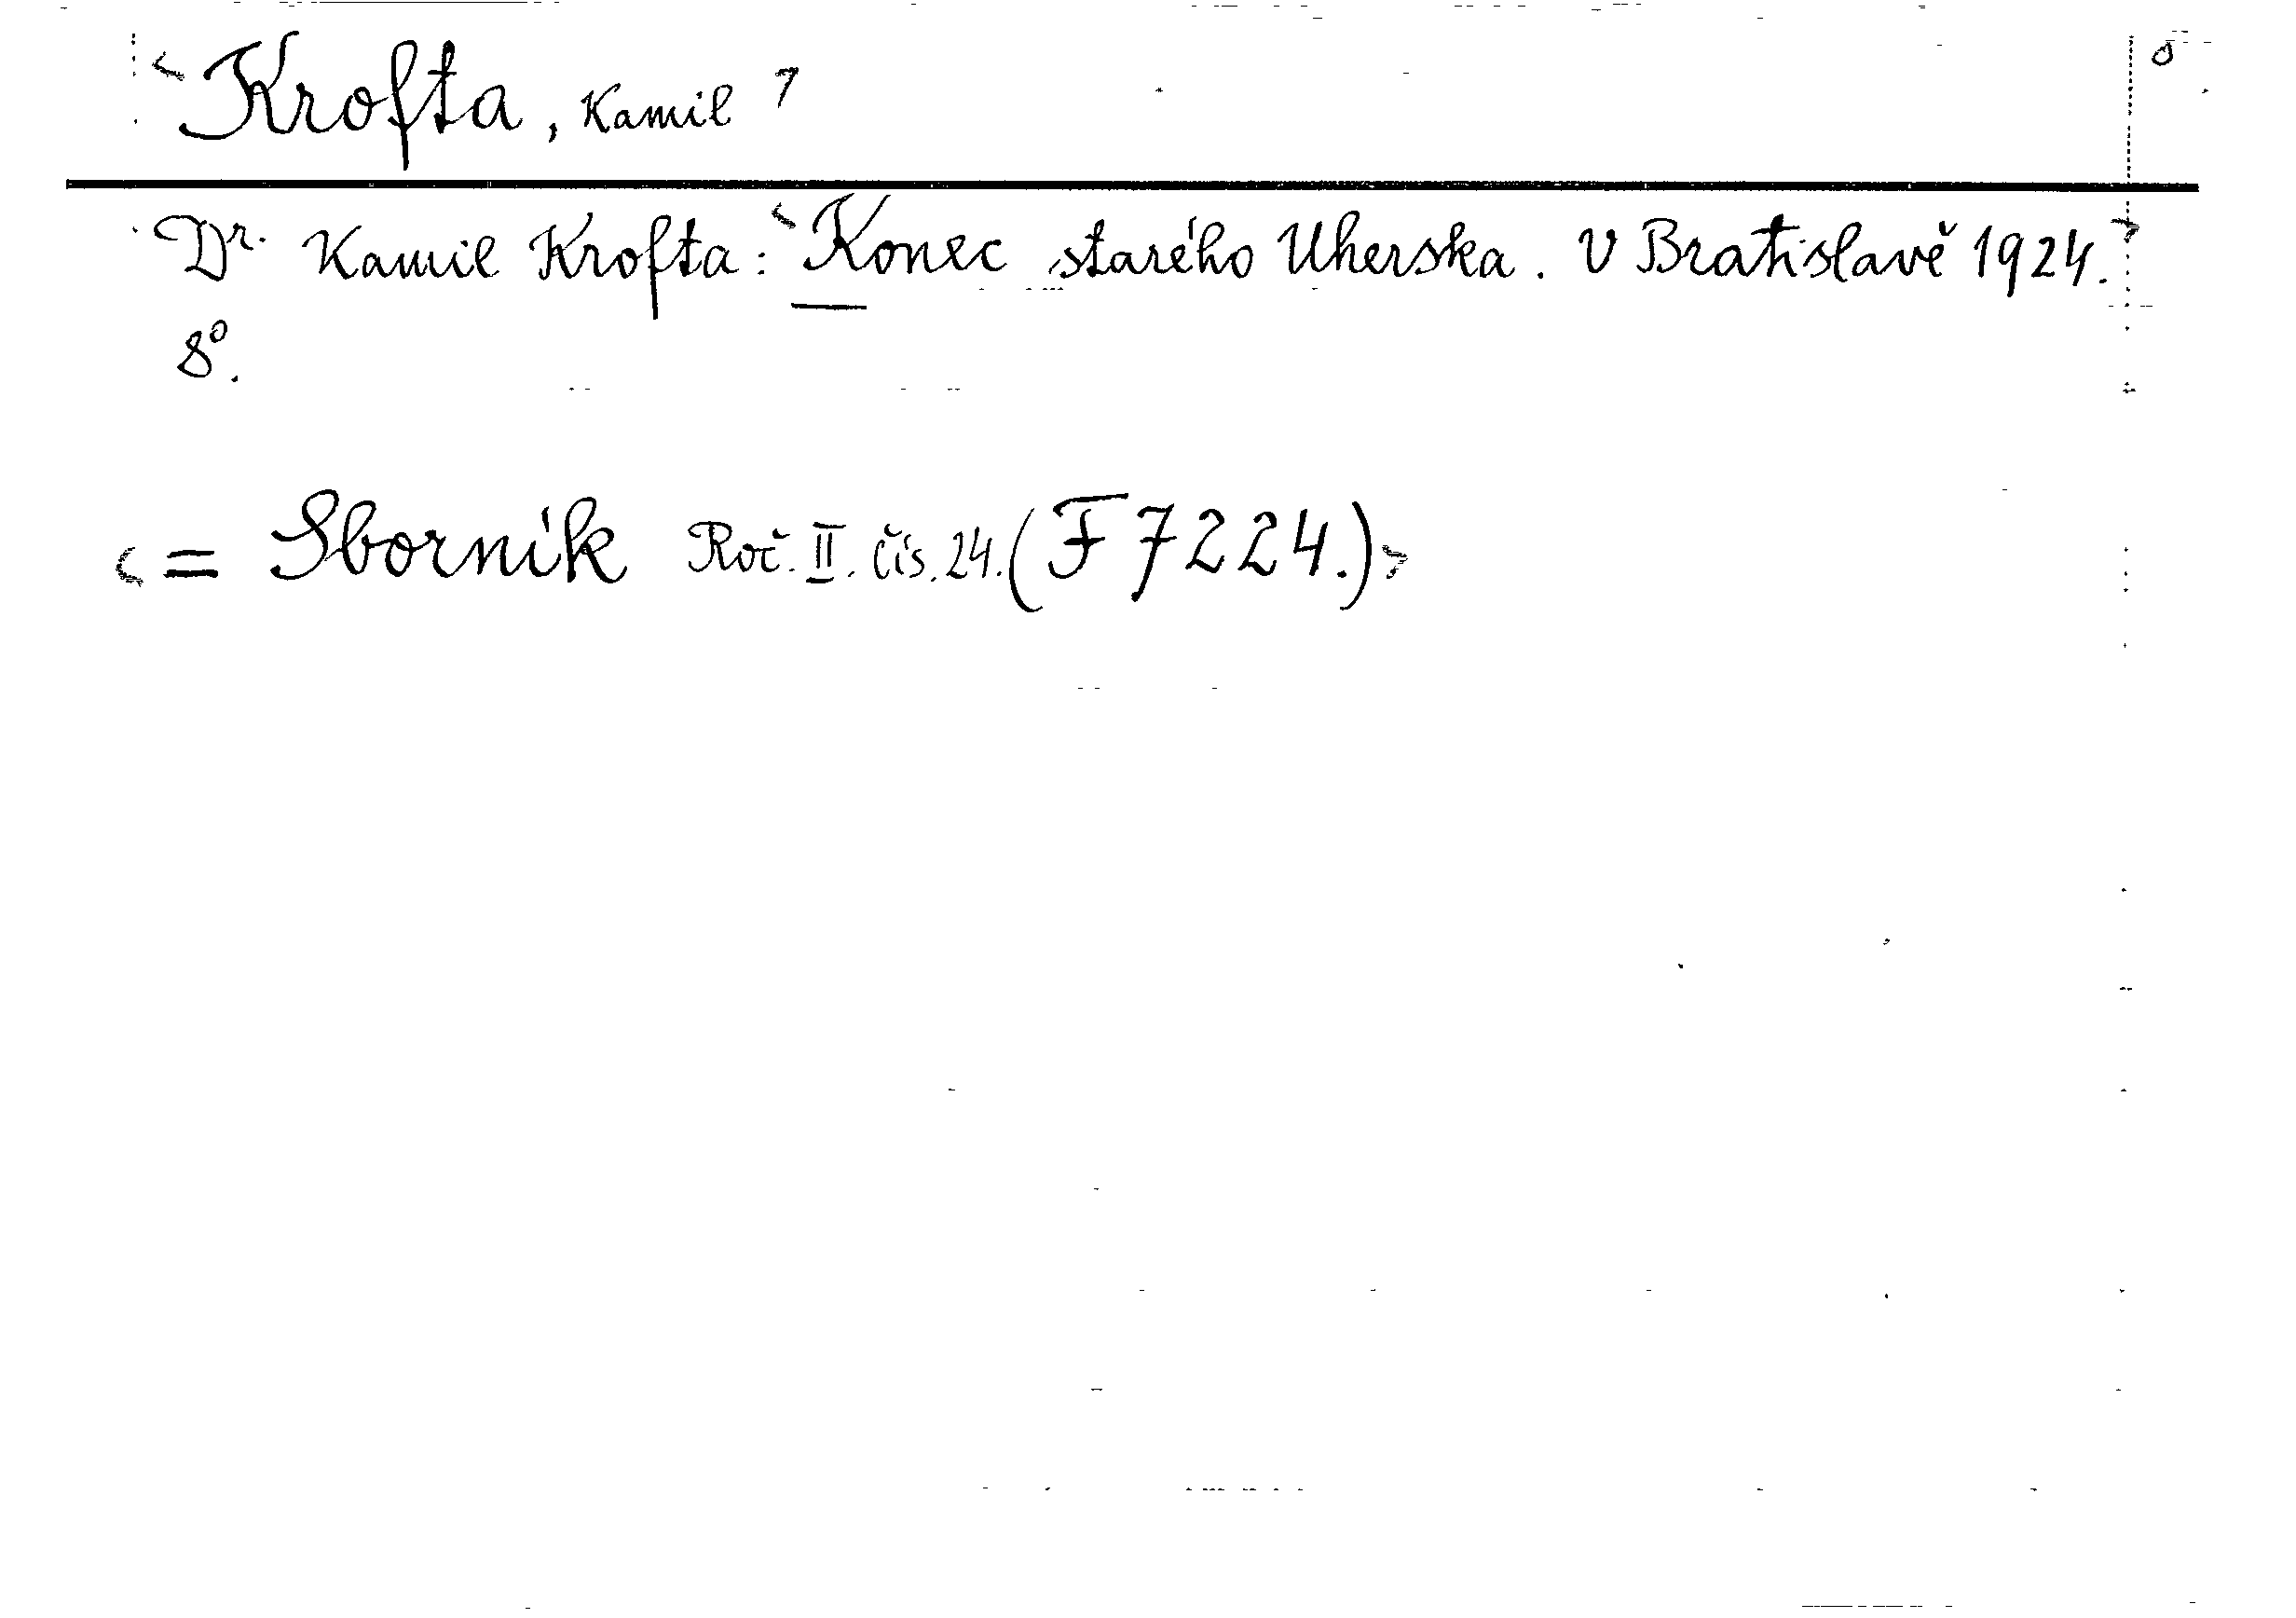 Krofta, Kamil
Dr. Kamil Krofta: Konec starého Uherska. V Bratislavě 1924.
8°.
= Sborník Roč. II. čís. 24. (F 7224.)